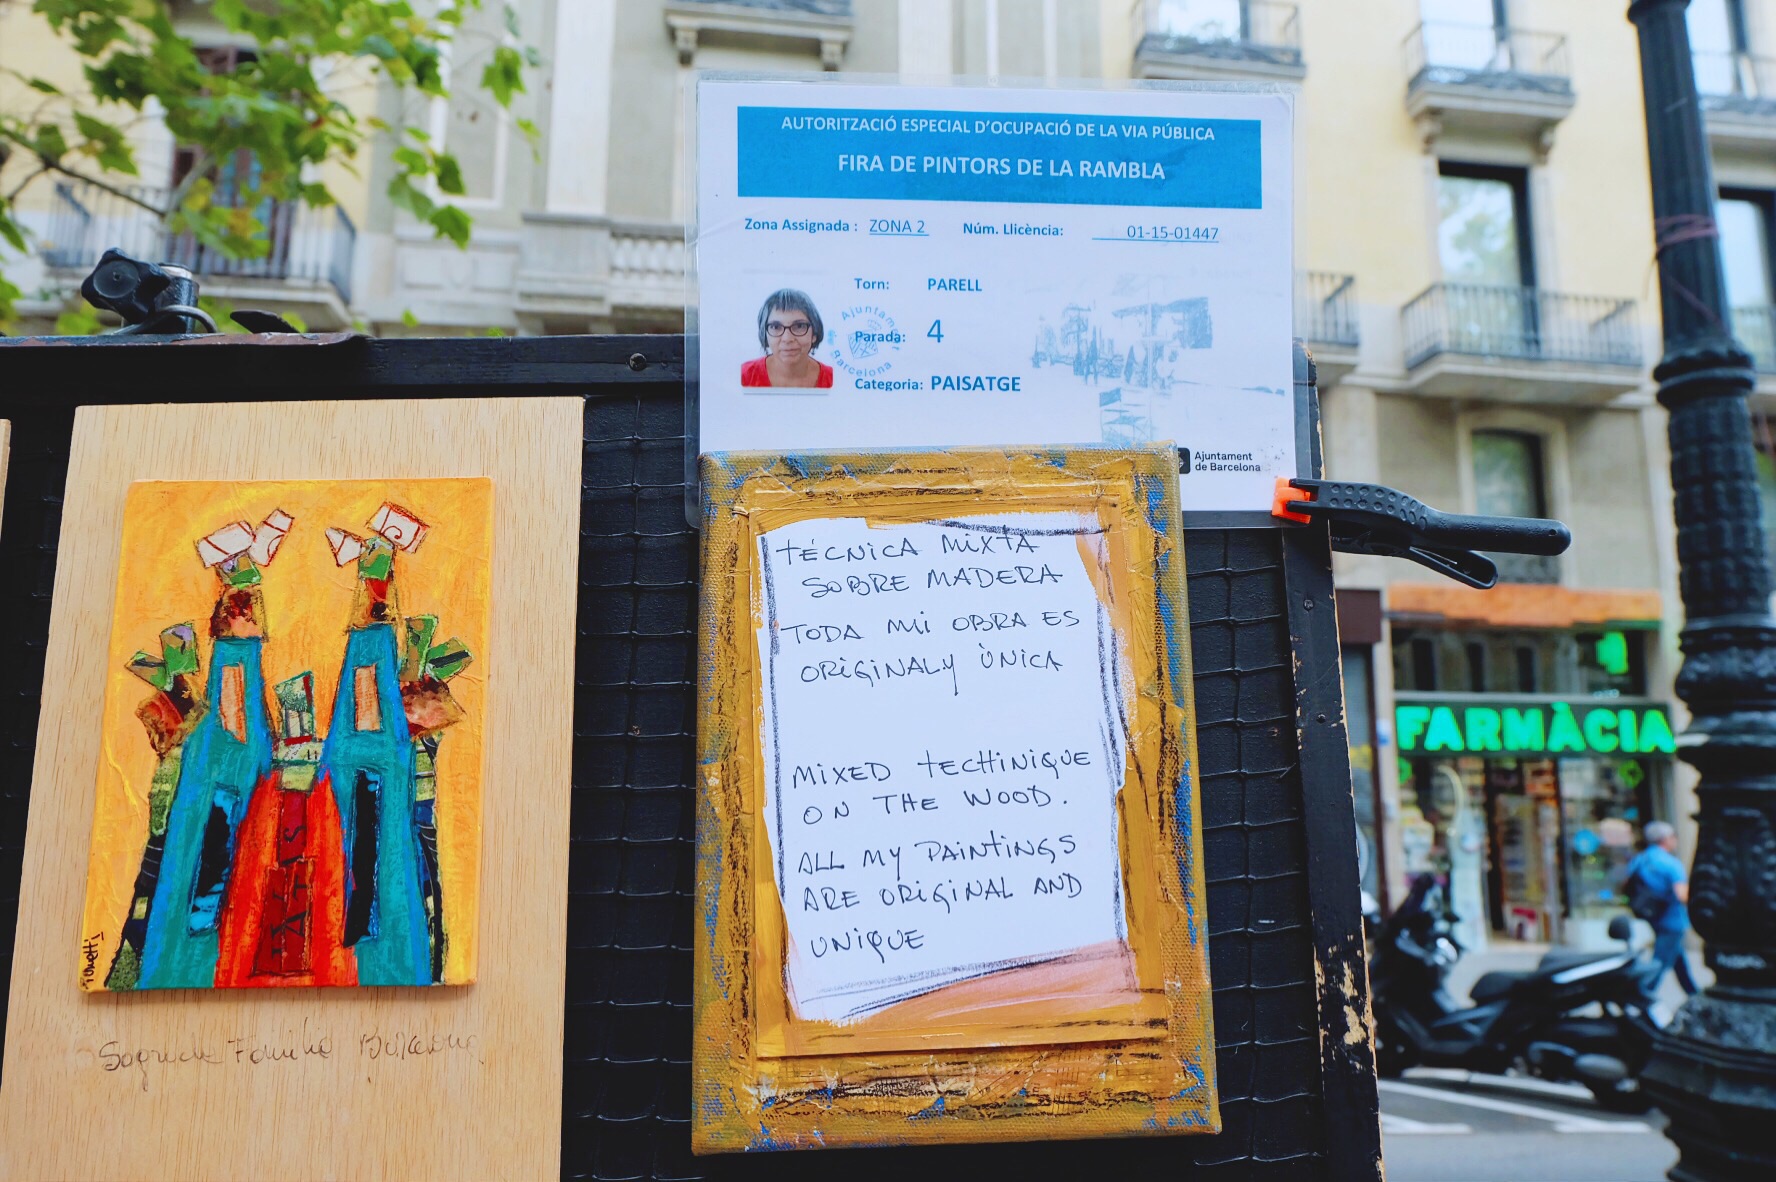 AUTORITZACIÓ ESPECIAL D'OCUPACIÓ DE LA VIA PÚBLICA
FIRA DE PINTORS DE LA RAMBLA
Zona Assignada : ZONA 2 Núm. Llicència: 01-15-01447
Torn: PARELL
Parada: 4
Categoria: PAISATGE
Ajuntament de Barcelona
Ajuntament
de Barcelona
TÉCNICA MIXTA
SOBRE MADERA
TODA MI OBRA ES
ORIGINAL Y ÙNICA
MIXED TECHINIQUE
ON THE WOOD.
ALL MY PAINTINGS
ARE ORIGINAL AND
UNIQUE
Sagrada Familia Barcelona
FARMÀCIA